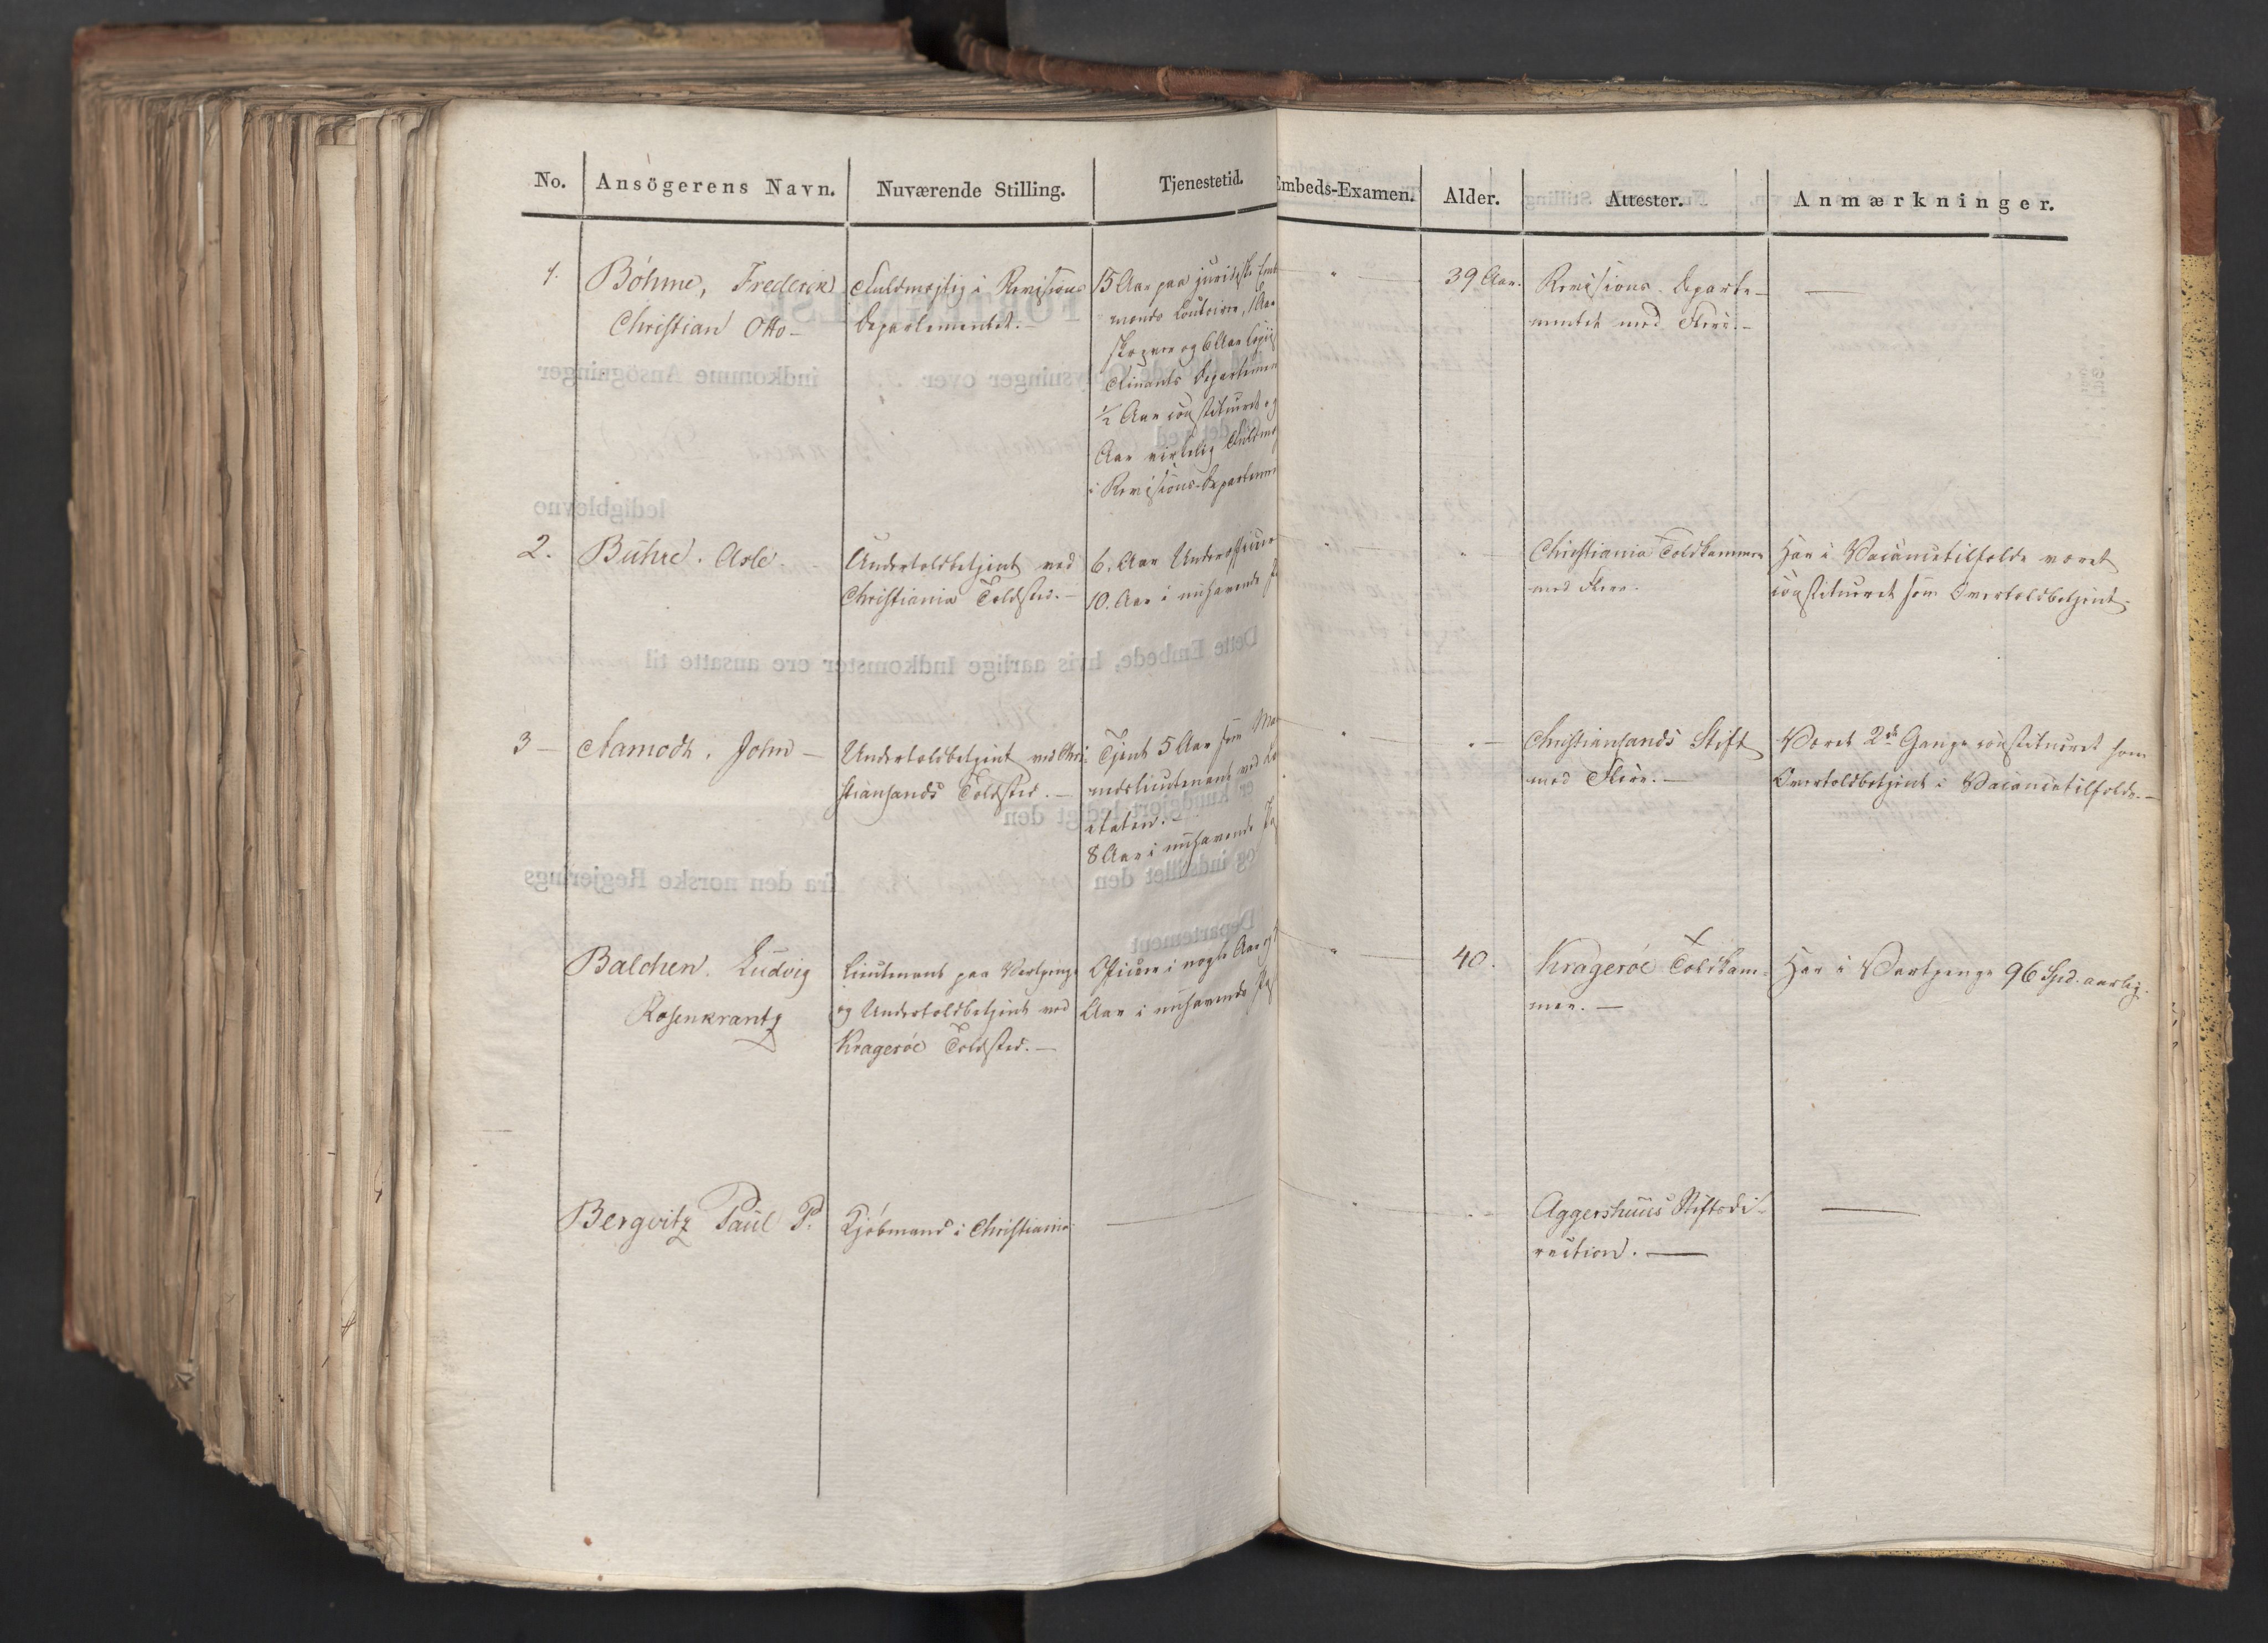 No. Ansögerens Navn. Nuværende Stilling. Tjenestetid. Embeds-Examen. Alder. Attester. Anmærkninger.
1.
Böhme, Frederik
Christian Otto
Fuldmægtig i Revisions
Departementet.
15 Aar paa juridiske Embeds
mænds Contoirer, 1 Aar
og 6 Aar Copiist
Finants Departemen
½ Aar constitueret og
Aar virkelig Fuldmæ
i Revisions-Departemen
39 Aar.
Revisions-Departe-
mentet med Flere.
2.
Buhre. Asle.
Undertoldbetjent ved
Christiania Toldsted.
6. Aar Underofficier
10. Aar i nuhavende
Christiania Toldkammer
med Flere.
Har i Vacancetilfælde været
constitueret som Overtoldbetjent.
3
Aamodt. John
Undertoldbetjent ved Chri-
stiansands Toldsted.
Tjent 5 Aar som Ma
nedslieutenant ved
etaten.
8 Aar i nuhavende
Christiansands Stift
med Flere.
Været 2de Gange constitueret som
Overtoldbetjent i Vacancetilfælde.
Balchen. Ludvig
Rosenkrantz
Lieutenant paa Vartpenge
og Undertoldbetjent ved
Kragerøe Toldsted.
Officier i nogle Aar og
Aar i nuhavende
40.
Kragerøe Toldkam-
mer.
Har i Vartpenge 96 Spd. aarlig.
Bergwitz Paul P.
Kjøbmand i Christiania
Aggershuus Stiftsdi-
rection.